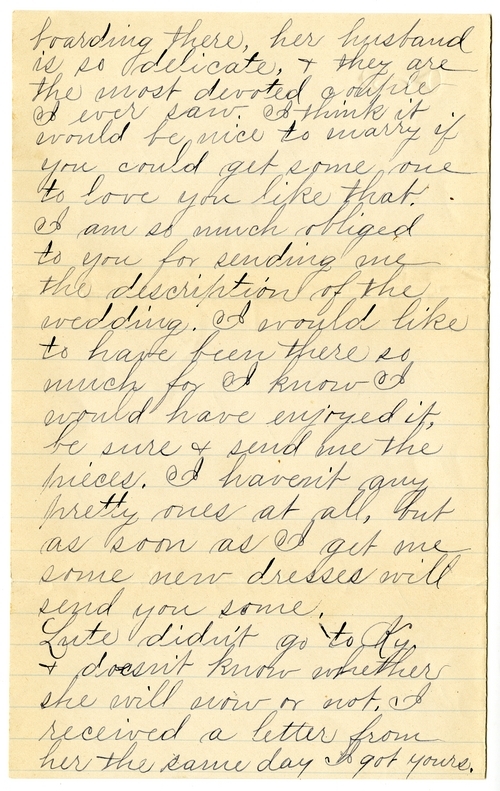 boarding there, her husband
is so delicate, & they are
the most devoted couple
I ever saw. I think it
would be nice to marry if
you could get some one
to love you like that.
I am so much obliged
to you for sending me
the description of the
wedding. I would like
to have been there so
much for I know I
would have enjoyed it,
be sure & send me the
pieces. I haven't any
pretty ones at all, but
as soon as I get me
some new dresses will
send you some.
Lute didn't go to Ky
& doesn't know whether
she will now or not. I
received a letter from
her the same day I got yours.